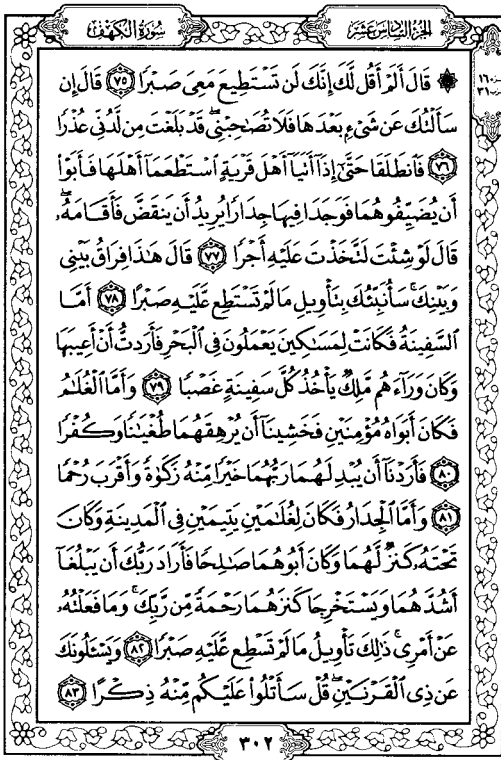 سُورَةُ الكَهْفِ
الجُزْءُ السَّادِسَ عَشَرَ
۞ قَالَ أَلَمْ أَقُل لَّكَ إِنَّكَ لَن تَسْتَطِيعَ مَعِيَ صَبْرًا ٧٥ قَالَ إِن
سَأَلْتُكَ عَن شَيْءٍ بَعْدَهَا فَلَا تُصَٰحِبْنِي ۖ قَدْ بَلَغْتَ مِن لَّدُنِّي عُذْرًا
٧٦ فَٱنطَلَقَا حَتَّىٰٓ إِذَآ أَتَيَآ أَهْلَ قَرْيَةٍ ٱسْتَطْعَمَآ أَهْلَهَا فَأَبَوْا۟
أَن يُضَيِّفُوهُمَا فَوَجَدَا فِيهَا جِدَارًا يُرِيدُ أَن يَنقَضَّ فَأَقَامَهُۥ ۖ
قَالَ لَوْ شِئْتَ لَتَّخَذْتَ عَلَيْهِ أَجْرًا ٧٧ قَالَ هَٰذَا فِرَاقُ بَيْنِي
وَبَيْنِكَ ۚ سَأُنَبِّئُكَ بِتَأْوِيلِ مَا لَمْ تَسْتَطِع عَّلَيْهِ صَبْرًا ٧٨ أَمَّا
ٱلسَّفِينَةُ فَكَانَتْ لِمَسَٰكِينَ يَعْمَلُونَ فِي ٱلْبَحْرِ فَأَرَدتُّ أَنْ أَعِيبَهَا
وَكَانَ وَرَآءَهُم مَّلِكٌ يَأْخُذُ كُلَّ سَفِينَةٍ غَصْبًا ٧٩ وَأَمَّا ٱلْغُلَٰمُ
فَكَانَ أَبَوَاهُ مُؤْمِنَيْنِ فَخَشِينَآ أَن يُرْهِقَهُمَا طُغْيَٰنًا وَكُفْرًا
٨٠ فَأَرَدْنَآ أَن يُبْدِلَهُمَا رَبُّهُمَا خَيْرًا مِّنْهُ زَكَوٰةً وَأَقْرَبَ رُحْمًا
٨١ وَأَمَّا ٱلْجِدَارُ فَكَانَ لِغُلَٰمَيْنِ يَتِيمَيْنِ فِي ٱلْمَدِينَةِ وَكَانَ
تَحْتَهُۥ كَنزٌ لَّهُمَا وَكَانَ أَبُوهُمَا صَٰلِحًا فَأَرَادَ رَبُّكَ أَن يَبْلُغَآ
أَشُدَّهُمَا وَيَسْتَخْرِجَا كَنزَهُمَا رَحْمَةً مِّن رَّبِّكَ ۚ وَمَا فَعَلْتُهُۥ
عَنْ أَمْرِي ۚ ذَٰلِكَ تَأْوِيلُ مَا لَمْ تَسْطِع عَّلَيْهِ صَبْرًا ٨٢ وَيَسْـَٔلُونَكَ
عَن ذِي ٱلْقَرْنَيْنِ ۖ قُلْ سَأَتْلُوا۟ عَلَيْكُم مِّنْهُ ذِكْرًا ٨٣
٣٠٢